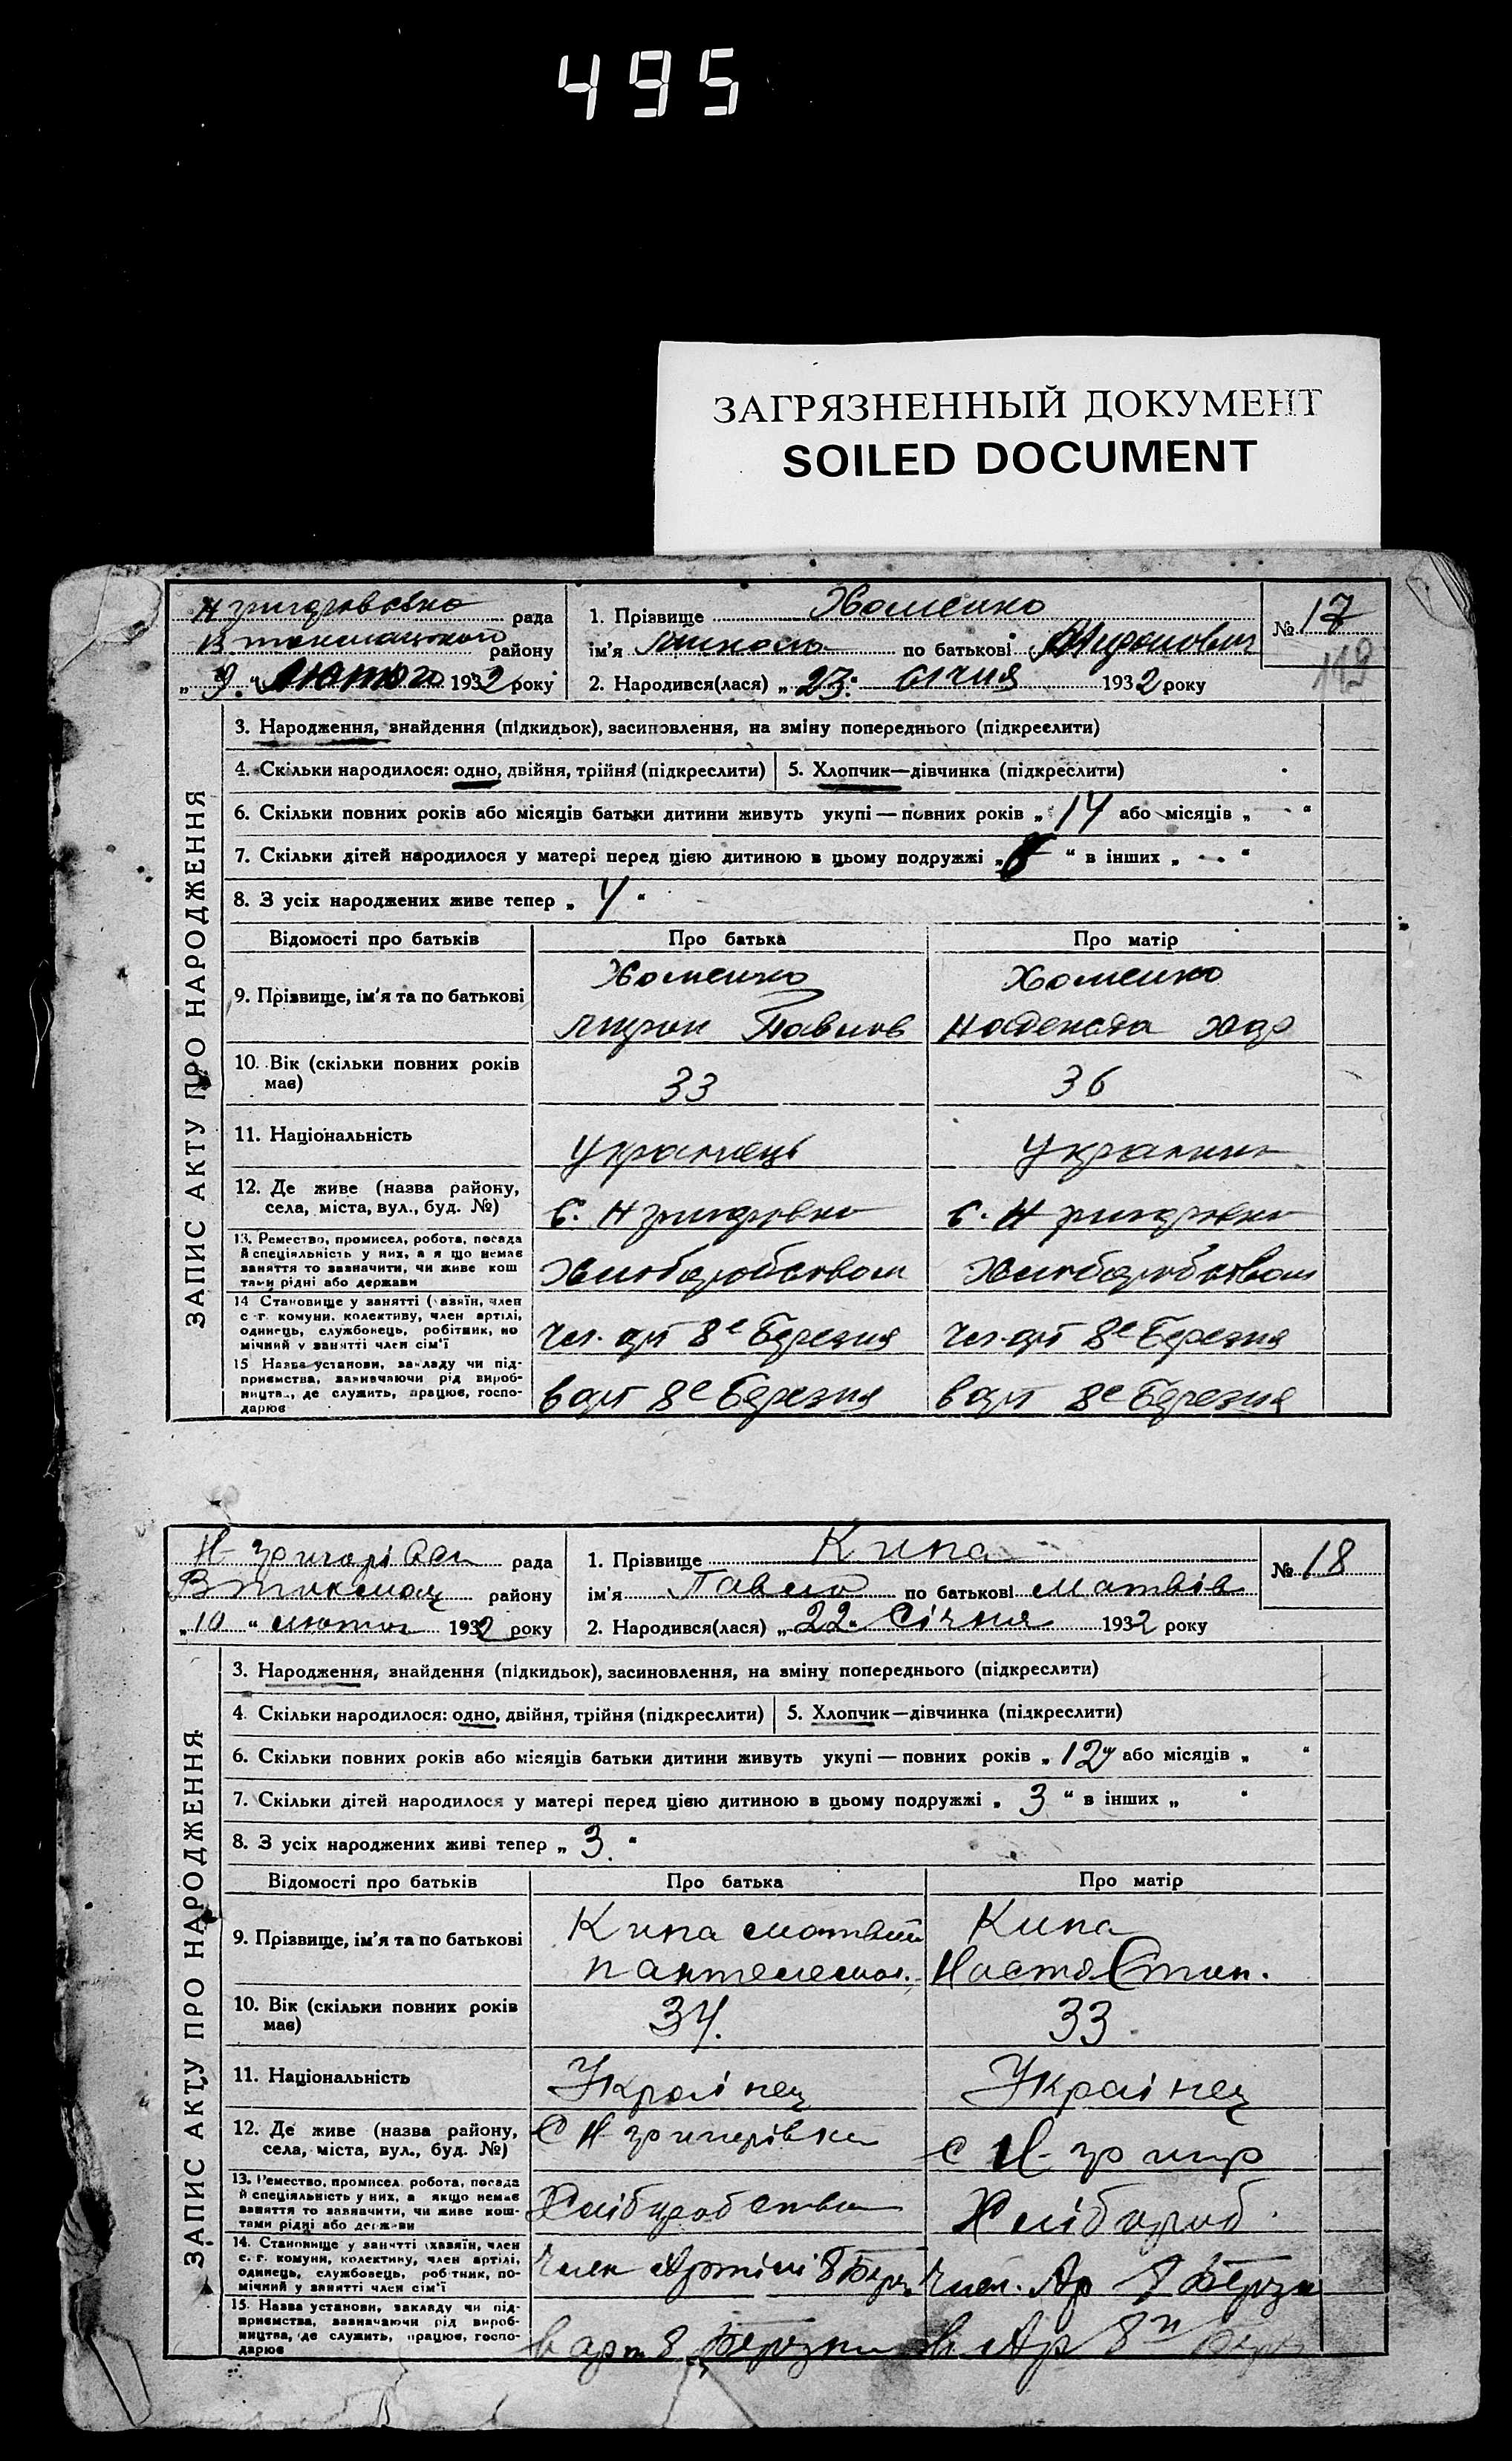 495
ЗАГРЯЗНЕННЫЙ ДОКУМЕНТ
SOILED DOCUMENT
ЗАПИС АКТУ ПРО НАРОДЖЕННЯ
рада
району
„ 9. “ Лютого 1932 року
1. Прізвище Хоменко
№ 17
ім'я по батькові Миронович
119
2. Народився(лася) „ 23. січня 1932 року
3. Народження, знайдення (підкидьок), засиновлення, на зміну попереднього (підкреслити)
4. Скільки народилося: одно, двійня, трійня (підкреслити) 5. Хлопчик—дівчинка (підкреслити)
6. Скільки повних років або місяців батьки дитини живуть укупі — повних років „ 14 або місяців „ — “
7. Скільки дітей народилося у матері перед цією дитиною в цьому подружжі „ “ в інших „ - “
8. З усіх народжених живе тепер „ 4 “
Відомості про батьків Про батька Про матір
9. Прізвище, ім'я та по батькові
Хоменко Хоменко
Мирон Павлов Надежда Хар
10. Вік (скільки повних років має)
33 36
11. Національність
Украинець Украинк
12. Де живе (назва району,
села, міста, вул., буд. №)
с. Н григоровка с. Н григоровка
13. Ремество, промисел, робота, посада
й спеціяльність у них, а я що немає
заняття то зазначити, чи живе кош
тами рідні або держави
Хлоборобством Хлоборобством
14 Становище у занятті (хазяїн, член
с-г. комуни, колективу, член артілі,
одинець, службовець, робітник, по
мічний у занятті член сім'ї
Чл. арт 8е Березня Чл. арт 8е Березня
15 Назва установи, закладу чи під-
приємства, зазначаючи рід вироб-
ництва, де служить, працює, госпо-
дарює
в арт 8е Березня в арт 8е Березня
ЗАПИС АКТУ ПРО НАРОДЖЕННЯ
рада
В Токмац району
„ 10 “ лютог 1932 року
1. Прізвище Кипа
№ 18
ім'я Павло по батькові Матвів
2. Народився(лася) „ 22 “ Січня 1932 року
3. Народження, знайдення (підкидьок), засиновлення, на зміну попереднього (підкреслити)
4. Скільки народилося: одно, двійня, трійня (підкреслити) 5. Хлопчик—дівчинка (підкреслити)
6. Скільки повних років або місяців батьки дитини живуть укупі — повних років „ 12 “ або місяців „ “
7. Скільки дітей народилося у матері перед цією дитиною в цьому подружжі „ 3 “ в інших „ “
8. З усіх народжених живі тепер „ 3 “
Відомості про батьків Про батька Про матір
9. Прізвище, ім'я та по батькові
Кипа Матвій Кипа
Пантелемон. Настя Степ.
10. Вік (скільки повних років
має)
34. 33
11. Національність
Украінец Украінец
12. Де живе (назва району,
села, міста, вул., буд. №)
С Н григорівка С Н григор
13. Ремество, промисел, робота, посада
й спеціяльність у них, а якщо немає
заняття то зазначити, чи живе кош-
тами рідні або держави
Хліборобства Хлібороб
14. Становище у занятті (хазяїн, член
с. г. комуни, колективу, член артілі,
одинець, службовець, робітник, по-
мічний у занятті член сім'ї
Член Артілі 8 Берз Член. Ар 8 Берзн
15. Назва установи, закладу чи під-
приємства, зазначаючи рід вироб-
ництва, де служить, працює, госпо-
дарює
в арт 8 Берзня в Ар 8